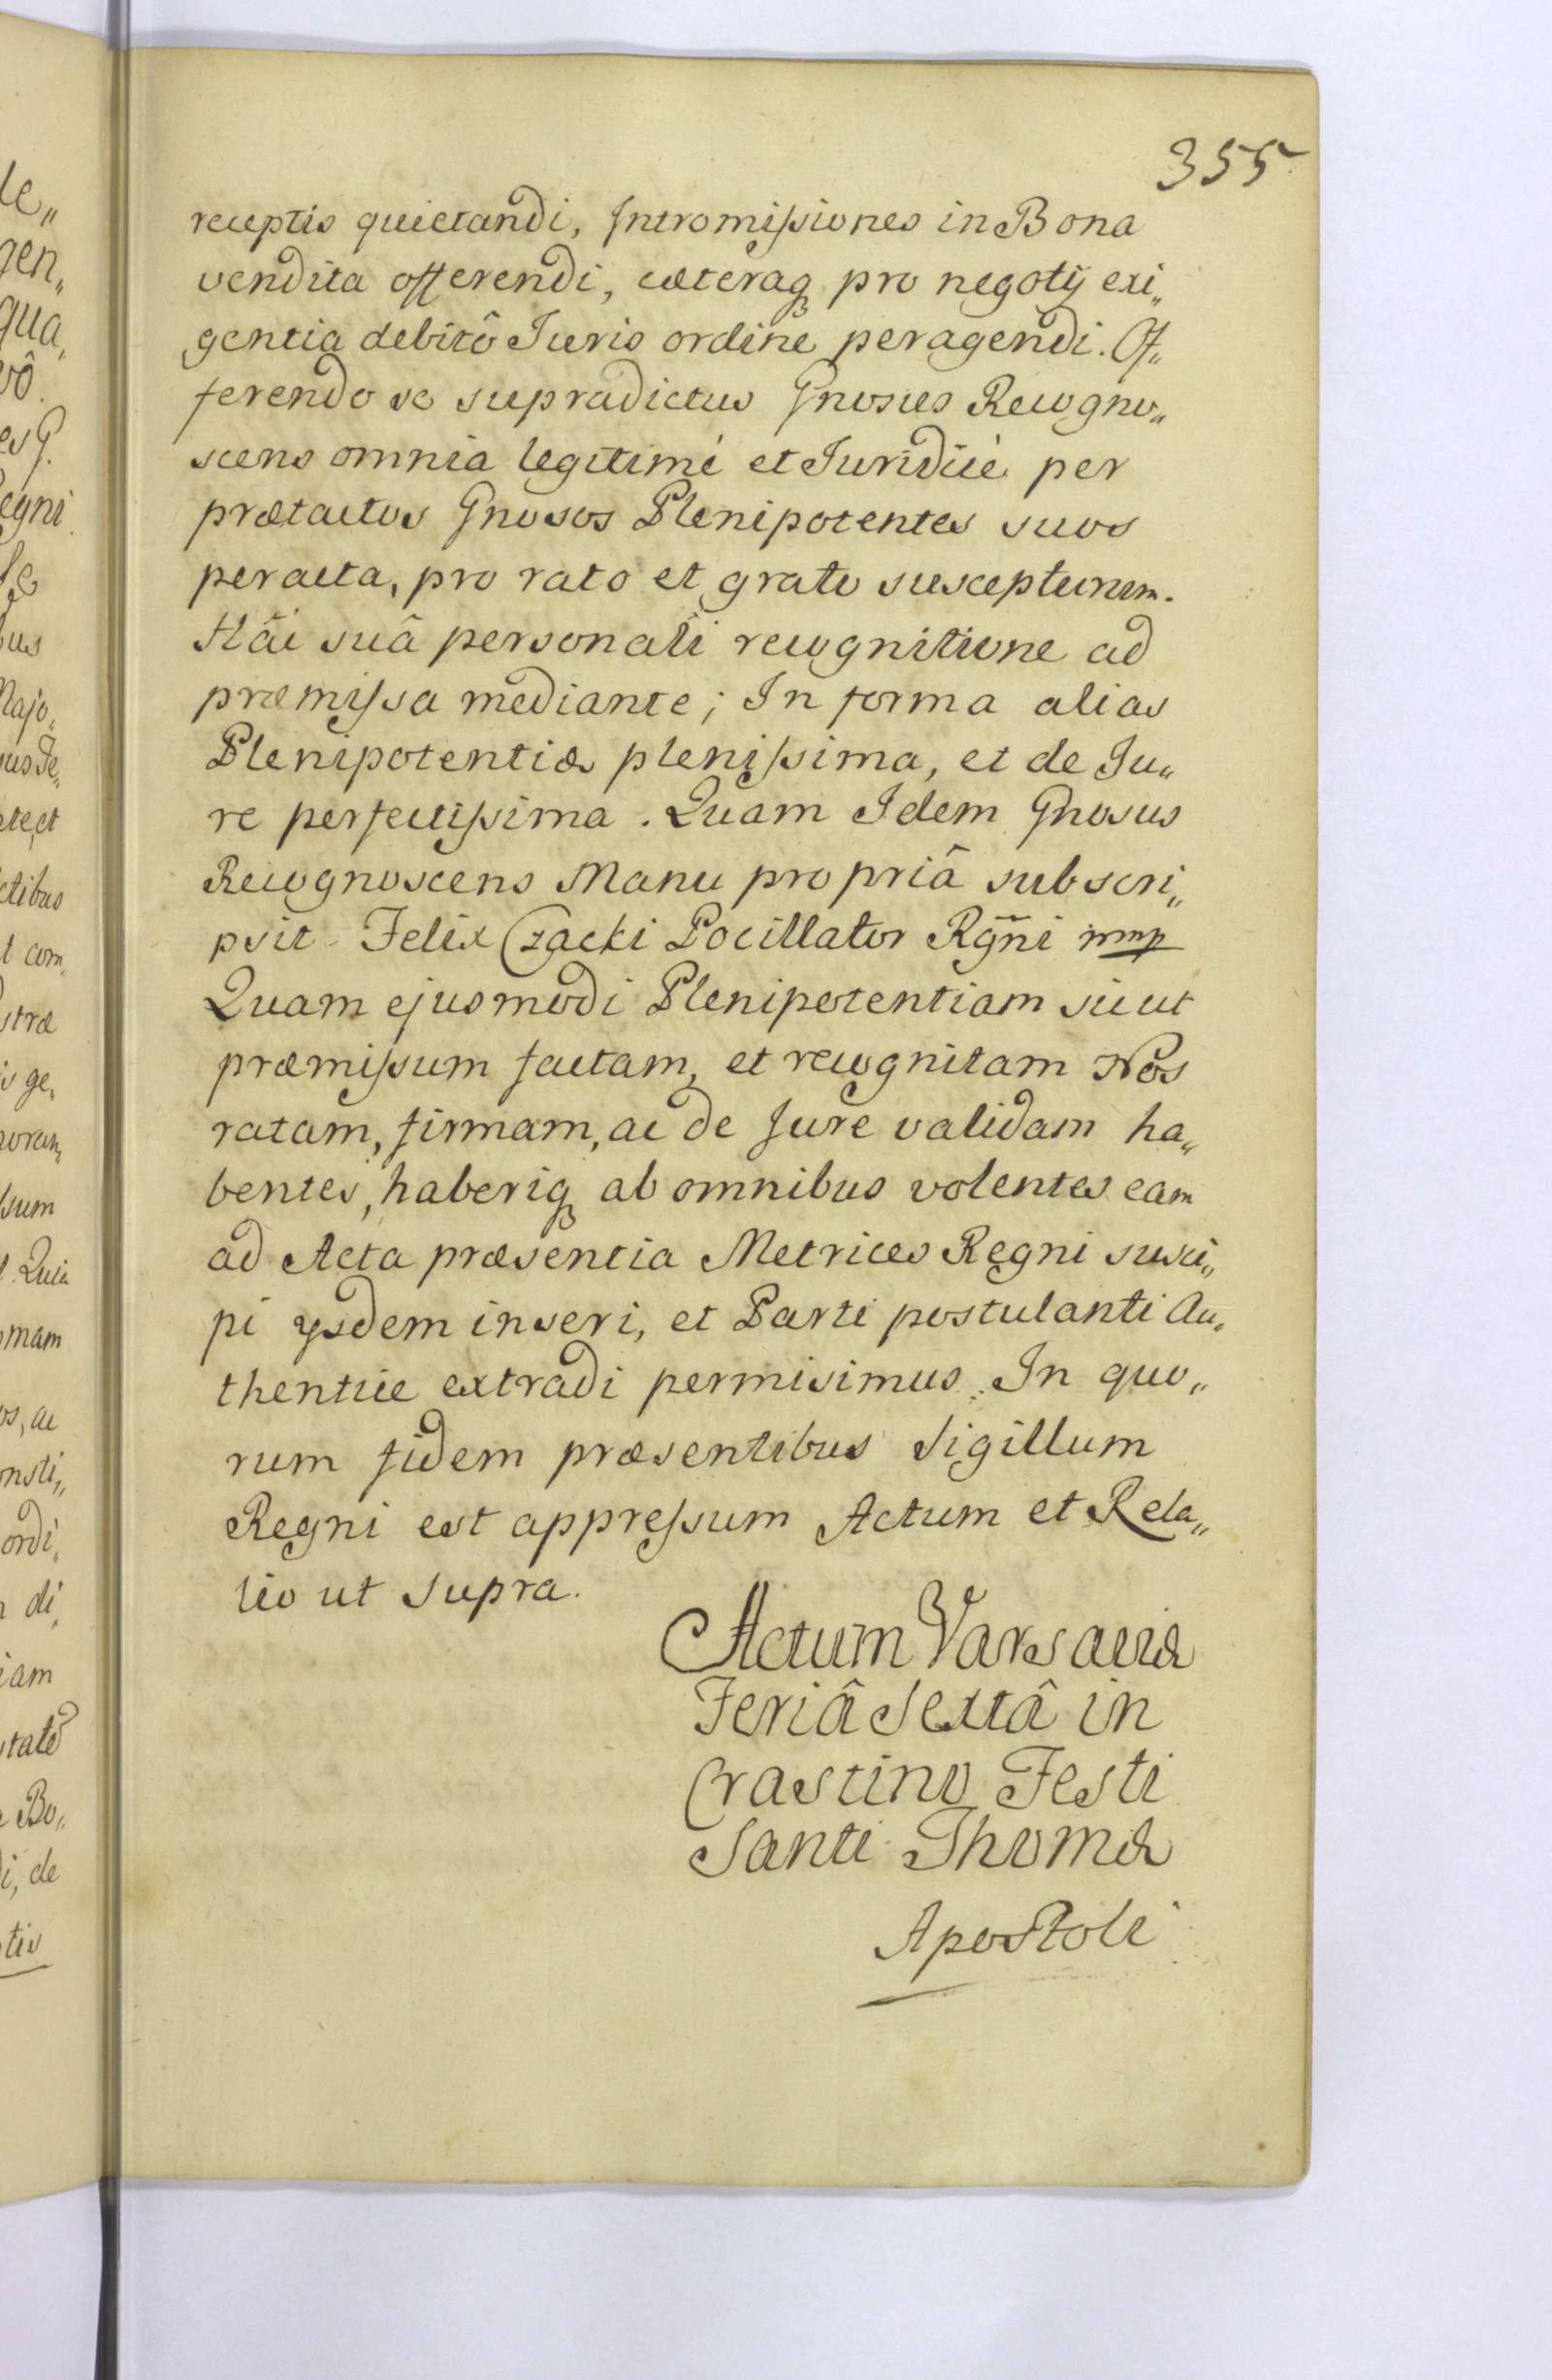 355
receptis quietandi, Intromissiones in Bona
vendita offerendi, cæteraq pro negotÿ exi„
gentia debitô Iuris ordine peragendi. Of„
ferendo se supradictus Gnosus Recogno„
scens omnia legitimè et Juridicè per
prætactos Gnosos Plenipotentes suos
peracta, pro rato et grato suscepturum.
Hâc suâ personali recognitione ad
præmissa mediante; In forma alias
Plenipotentiæ plenissima, et de Ju„
re perfectissima. Quam Idem Gnosus
Recognoscens Manu propriâ subscri„
psit Felix Czacki Pocillator Rgñi mmp
Quam ejusmodi Plenipotentiam sicut
præmissum factam, et recognitam Nos
ratam, firmam, ac de Jure validam ha„
bentes, haberiq ab omnibus volentes eam
ad Acta præsentia Metrices Regni susci„
pi ysdem inseri, et Parti postulanti Au„
thentice extradi permisimus. In quo„
rum fidem præsentibus Sigillum
Regni est appressum Actum et Rela„
tio ut supra.
Actum Varsaviæ
Feriâ Sextâ in
Crastino Festi
Santi Thomæ
Apostoli